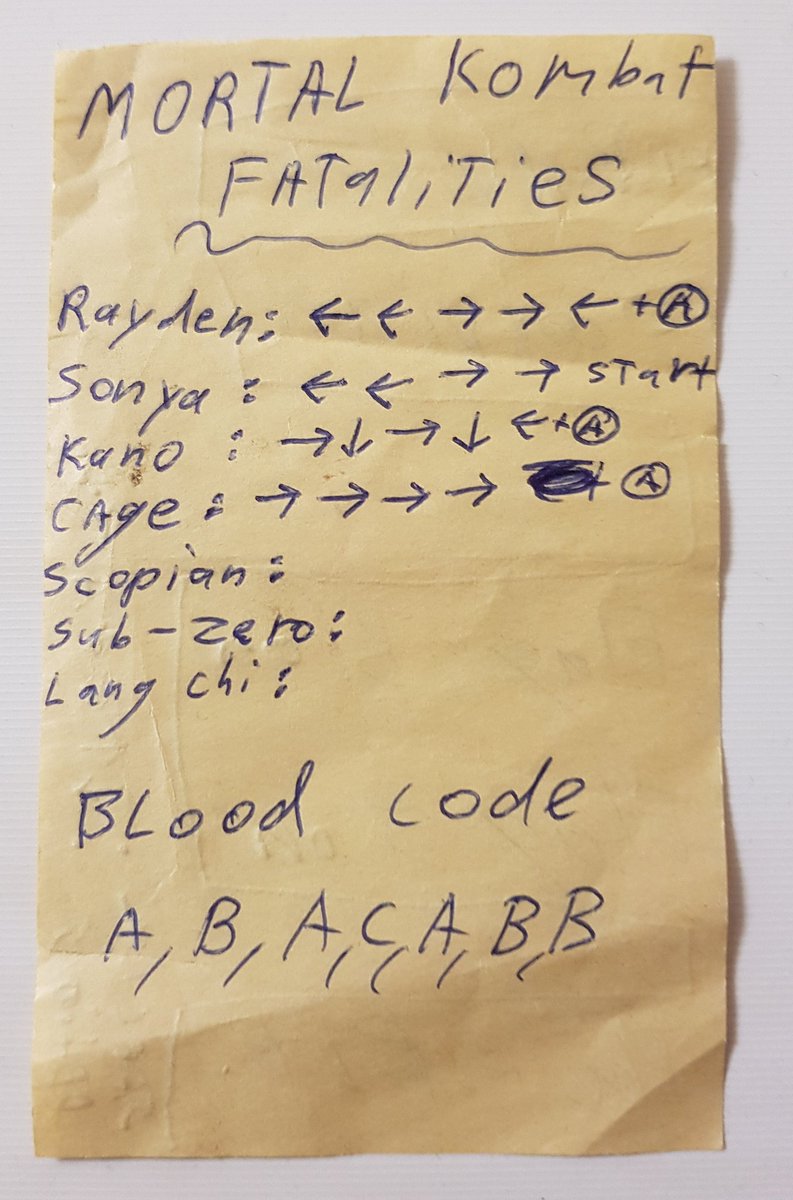 MORTAL Kombat
FATaliTieS
Rayden: ← ← → → ← + Ⓐ
Sonya : ← ← → → start
Kano : → ↓ → ↓ ← + Ⓐ
CAge : → → → → + Ⓐ
Scopian :
Sub-zero :
Lang chi :
BLood code
A, B, A, C, A, B, B